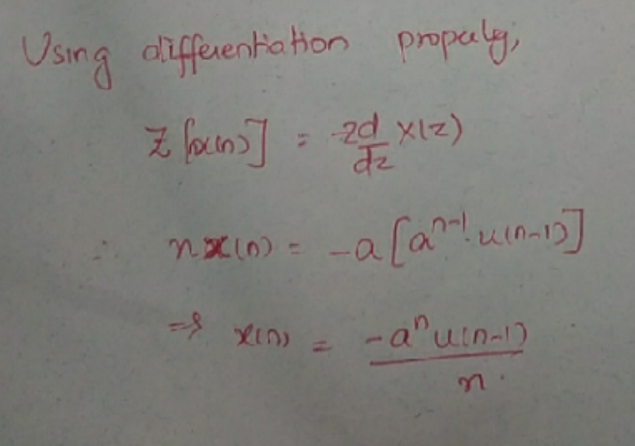 Using differentiation property,
Z[x(n)] = -zd/dz X(z)
∴ n x(n) = -a [a^{n-1} u(n-1)]
⇒ x(n) = -a^n u(n-1) / n.